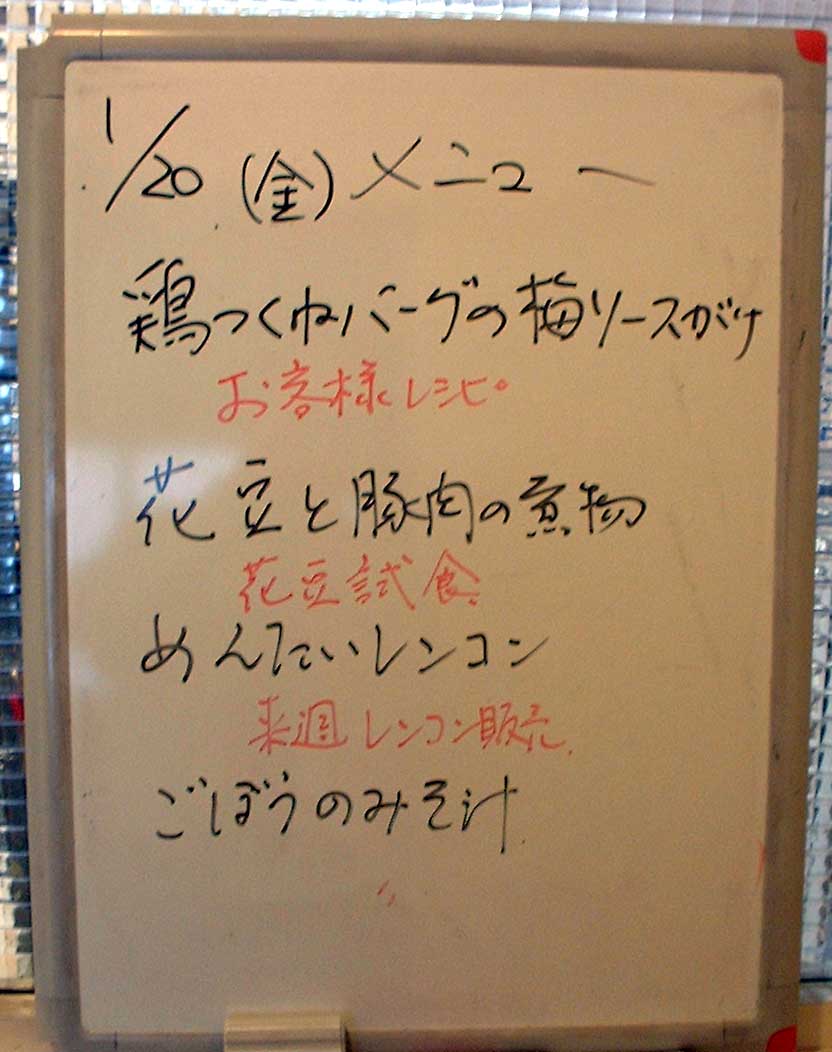 1/20 (金) メニュー
鶏つくねバーグの梅ソースがけ
お客様レシピ
花豆と豚肉の煮物
花豆試食
めんたいレンコン
来週レンコン販売
ごぼうのみそ汁